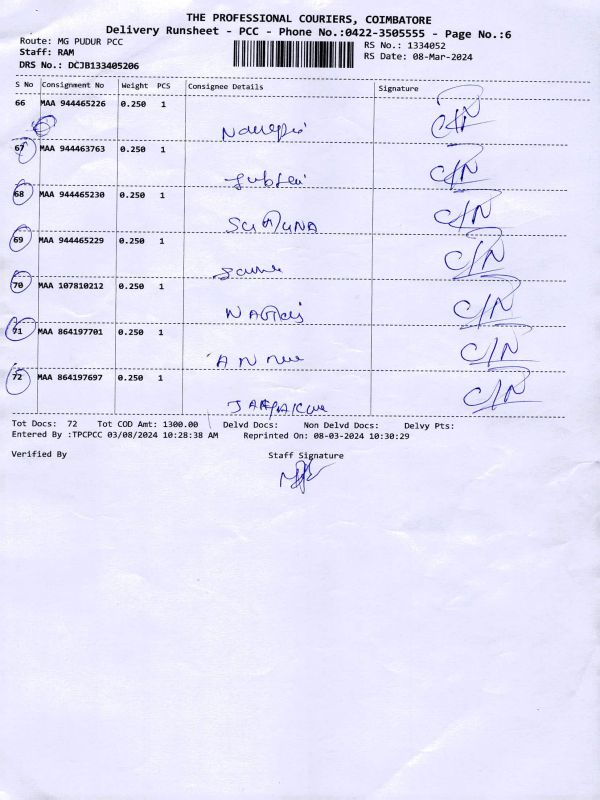 THE PROFESSIONAL COURIERS, COIMBATORE
Delivery Runsheet - PCC - Phone No.:0422-3505555 - Page No.:6
Route: MG PUDUR PCC
RS No.: 1334052
Staff: RAM
RS Date: 08-Mar-2024
DRS No.: DCJB133405206
S No Consignment No Weight PCS Consignee Details Signature
66 MAA 944465226 0.250 1
67 MAA 944463763 0.250 1
68 MAA 944465230 0.250 1
69 MAA 944465229 0.250 1
70 MAA 107810212 0.250 1
71 MAA 864197701 0.250 1
72 MAA 864197697 0.250 1
Tot Docs: 72 Tot COD Amt: 1300.00 Delvd Docs: Non Delvd Docs: Delvy Pts:
Entered By :TPCPCC 03/08/2024 10:28:38 AM Reprinted On: 08-03-2024 10:30:29
Verified By Staff Signature